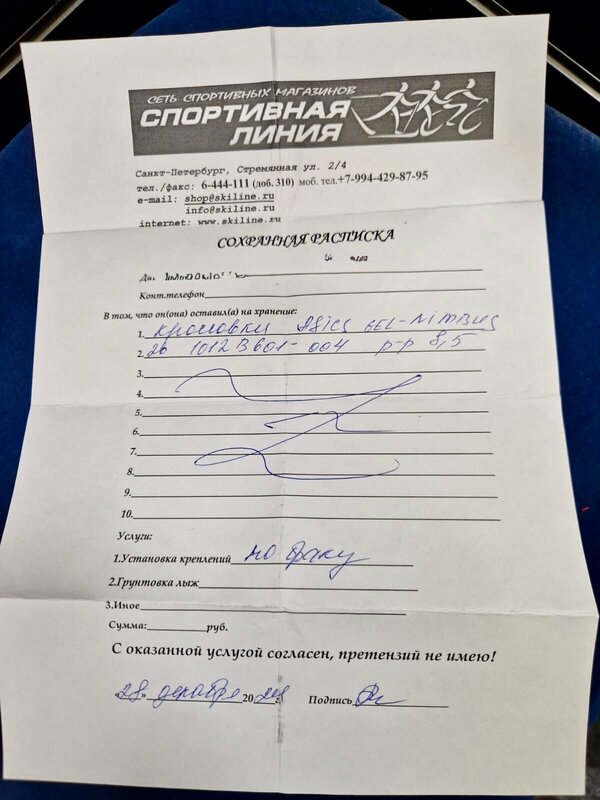 СЕТЬ СПОРТИВНЫХ МАГАЗИНОВ
СПОРТИВНАЯ
ЛИНИЯ
Санкт-Петербург, Стремянная ул. 2/4
тел./факс: 6-444-111 (доб. 310) моб. тел.+7-994-429-87-95
e-mail: shop@skiline.ru
info@skiline.ru
internet: www.skiline.ru
СОХРАННАЯ РАСПИСКА
Конт.телефон
В том, что он(она) оставил(а) на хранение:
1. кроссовки Asics GEL-NIMBUS
2. 26 1012B601-004 р-р 8,5
3.
4.
5.
6.
7.
8.
9.
10.
Услуги:
1.Установка креплений по браку
2.Грунтовка лыж
3.Иное
Сумма: руб.
С оказанной услугой согласен, претензий не имею!
«28» декабря 2024 Подпись